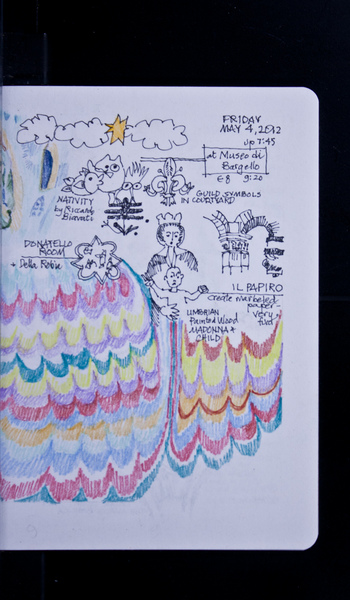 FRIDAY
MAY 4, 2012
up 7:45
at Museo di
Bargello
€8 9:20
NATIVITY
by Riccardo
Biavati
GUILD SYMBOLS
IN COURTYARD
DONATELLO
ROOM
+ Della Robia
IL PAPIRO
create marbeled
paper
very
fun
UMBRIAN
Painted Wood
MADONNA +
CHILD